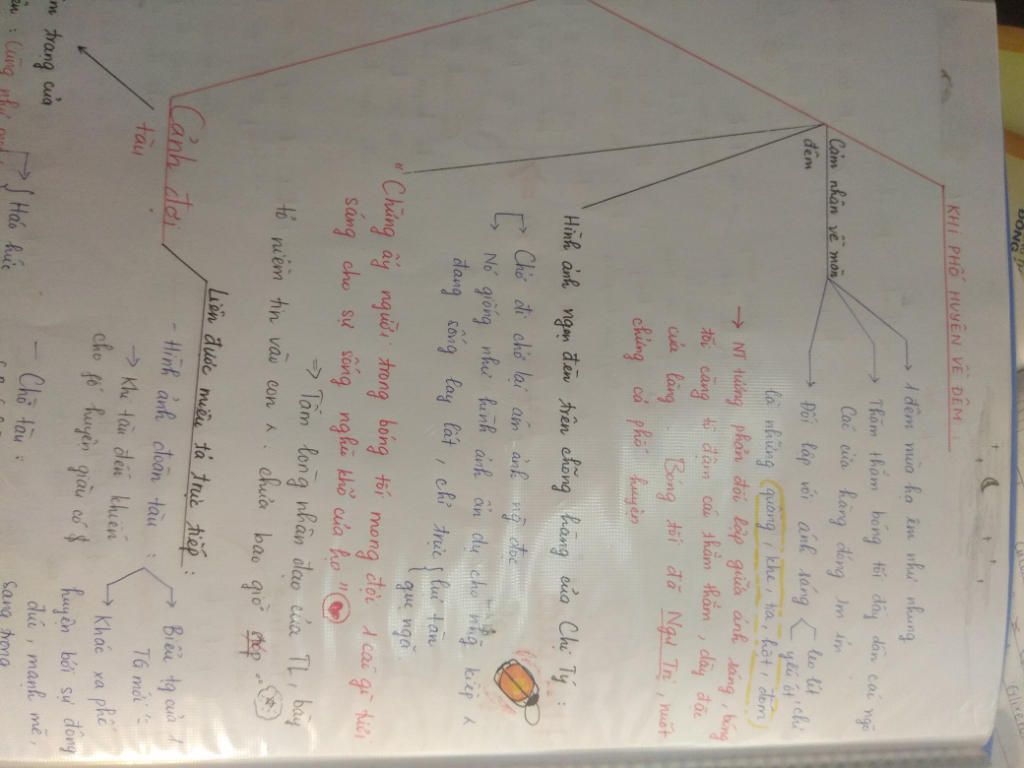 KHI PHỐ HUYỆN VỀ ĐÊM :
Cảm nhận về màn
đêm
→ 1 đêm mùa hạ êm như nhung
→ Thăm thẳm bóng tối đầy dần các ngõ
Các cửa hàng đóng im ỉm
→ Đối lập với ánh sáng < leo lét,
yếu ớt, chỉ
là những quầng, khe, tia, hột, đốm
→ NT tương phản đối lập giữa ánh sáng, bóng
tối càng tô đậm cái thăm thẳm, dày đặc
của làng. Bóng tối đã Ngự Trị, nuốt
chửng cả phố huyện
Hình ảnh ngọn đèn trên chõng hàng của Chị Tý :
→ Chở đi chở lại ám ảnh ng đọc
→ Nó giống như hình ảnh ẩn dụ cho nhg kiếp
đang sống lay lắt, chỉ trực { lụi tàn
gục ngã
"Chừng ấy người trong bóng tối mong đợi 1 cái gì tươi
sáng cho sự sống nghèo khổ của họ"
⇒ Tấm lòng nhân đạo của TL, bày
tỏ niềm tin vào con . chưa bao giờ
Cảnh đợi
tàu
Liên được miêu tả trực tiếp :
- Hình ảnh đoàn tàu :
→ Biểu tg của 1
TG mới
→ Khác xa phố
huyện bởi sự đông
đúc, mạnh mẽ,
sang trọng
→ Khi tàu đến khiến
cho phố huyện giàu có
- Chờ tàu :
trạng của
: Cũng như
→ { Háo hức